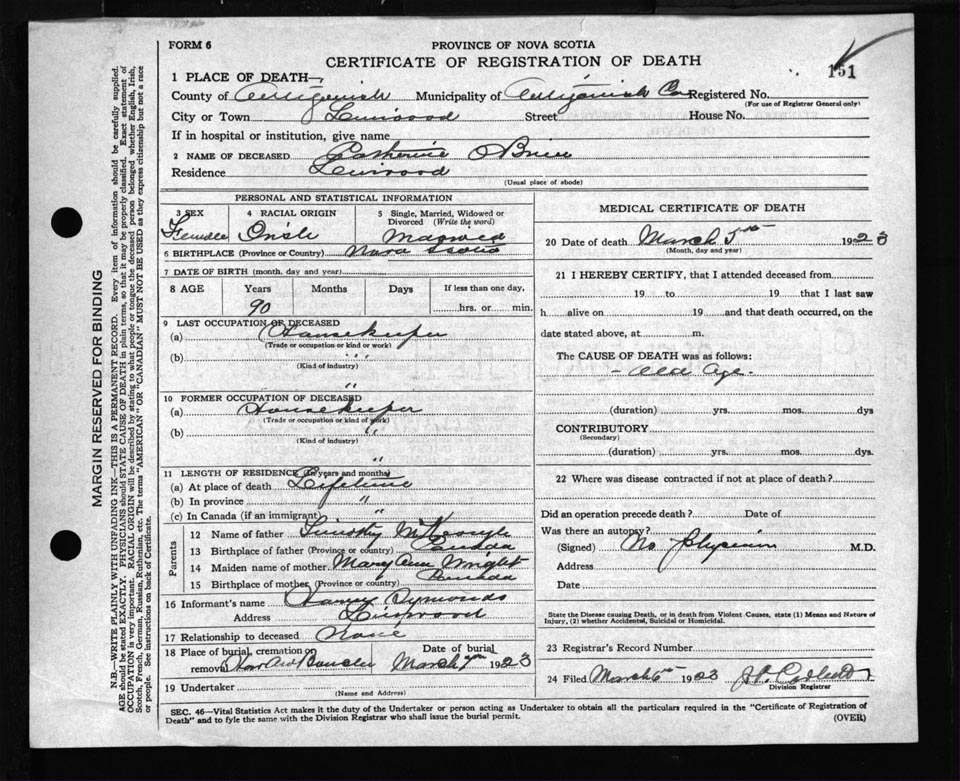 FORM 6
PROVINCE OF NOVA SCOTIA
CERTIFICATE OF REGISTRATION OF DEATH
151
1 PLACE OF DEATH—
County of Antigonish Municipality of Antigonish Co Registered No.
(For use of Registrar General only)
City or Town Linwood Street House No.
If in hospital or institution, give name
2 NAME OF DECEASED Catherine OBrien
Residence Linwood
(Usual place of abode)
PERSONAL AND STATISTICAL INFORMATION
3 SEX 4 RACIAL ORIGIN 5 Single, Married, Widowed or Divorced (Write the word)
Female Irish Married
6 BIRTHPLACE (Province or Country) Nova Scotia
7 DATE OF BIRTH (month, day and year)
8 AGE Years Months Days If less than one day,
90 hrs. or min.
9 LAST OCCUPATION OF DECEASED
(a) Housekeeper
(Trade or occupation or kind or work)
(b) "
(Kind of industry)
"
10 FORMER OCCUPATION OF DECEASED
(a) Housekeeper
(Trade or occupation or kind of work)
(b) "
(Kind of industry)
"
11 LENGTH OF RESIDENCE (In years and months)
(a) At place of death Lifetime
(b) In province "
(c) In Canada (if an immigrant) "
Parents
12 Name of father Timothy
13 Birthplace of father (Province or country) Canada
14 Maiden name of mother Mary Ann Wright
15 Birthplace of mother (Province or country) Canada
16 Informant's name Symonds
Address Linwood
17 Relationship to deceased None
18 Place of burial, cremation or removal
Date of burial
March 7th 1923
19 Undertaker
(Name and Address)
MEDICAL CERTIFICATE OF DEATH
20 Date of death March 5th 1923
(Month, day and year)
21 I HEREBY CERTIFY, that I attended deceased from
19 to 19 that I last saw
h alive on 19 and that death occurred, on the
date stated above, at m.
The CAUSE OF DEATH was as follows:
- Old Age -
(duration) yrs. mos. dys
CONTRIBUTORY
(Secondary)
(duration) yrs. mos. dys.
22 Where was disease contracted if not at place of death?
Did an operation precede death? Date of
Was there an autopsy?
(Signed) No Physician M.D.
Address
Date
State the Disease causing Death, or in death from Violent Causes, state (1) Means and Nature of
Injury, (2) whether Accidental, Suicidal or Homicidal.
23 Registrar's Record Number
24 Filed March 6th 1923
Division Registrar
SEC. 46—Vital Statistics Act makes it the duty of the Undertaker or person acting as Undertaker to obtain all the particulars required in the "Certificate of Registration of
Death" and to fyle the same with the Division Registrar who shall issue the burial permit.
(OVER)
MARGIN RESERVED FOR BINDING
N.B.—WRITE PLAINLY WITH UNFADING INK—THIS IS A PERMANENT RECORD. Every item of information should be carefully supplied.
AGE should be stated EXACTLY. PHYSICIANS should STATE CAUSE OF DEATH in plain terms, so that it may be properly classified. Exact statement of
OCCUPATION is very important. RACIAL ORIGIN will be described by stating to what people or tongue the deceased person belonged whether English, Irish,
Scotch, French, German, Russian, Ruthenian, etc. The terms "AMERICAN" OR "CANADIAN" MUST NOT BE USED as they express citizenship but not a race
or people. See instructions on back of Certificate.